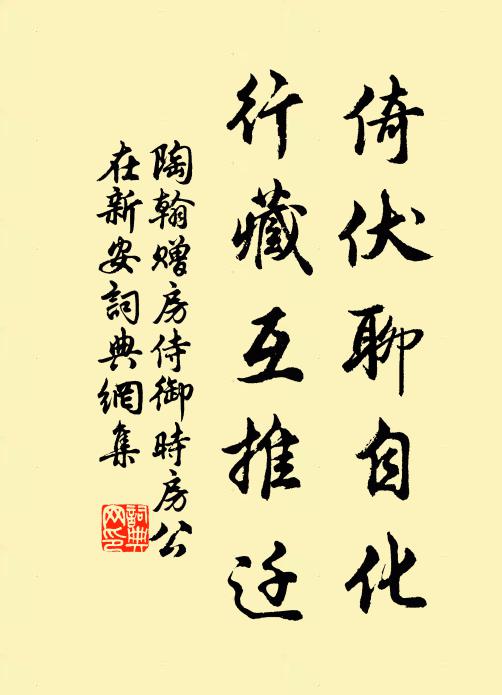 倚伏聊自化
行藏互推迁
陶翰赠房侍御時房公
在新安詞典網集
詞典网印